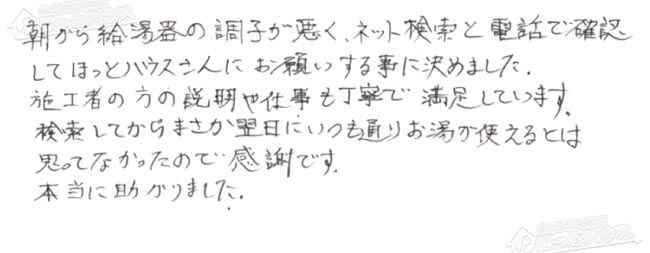 朝から給湯器の調子が悪く、ネット検索と電話で確認
してほっとハウスさんにお願いする事に決めました.
施工者の方の説明や仕事も丁寧で満足しています.
検索してからまさか翌日にいつも通りお湯が使えるとは
思ってなかったので感謝です.
本当に助かりました.
ほっとハウス